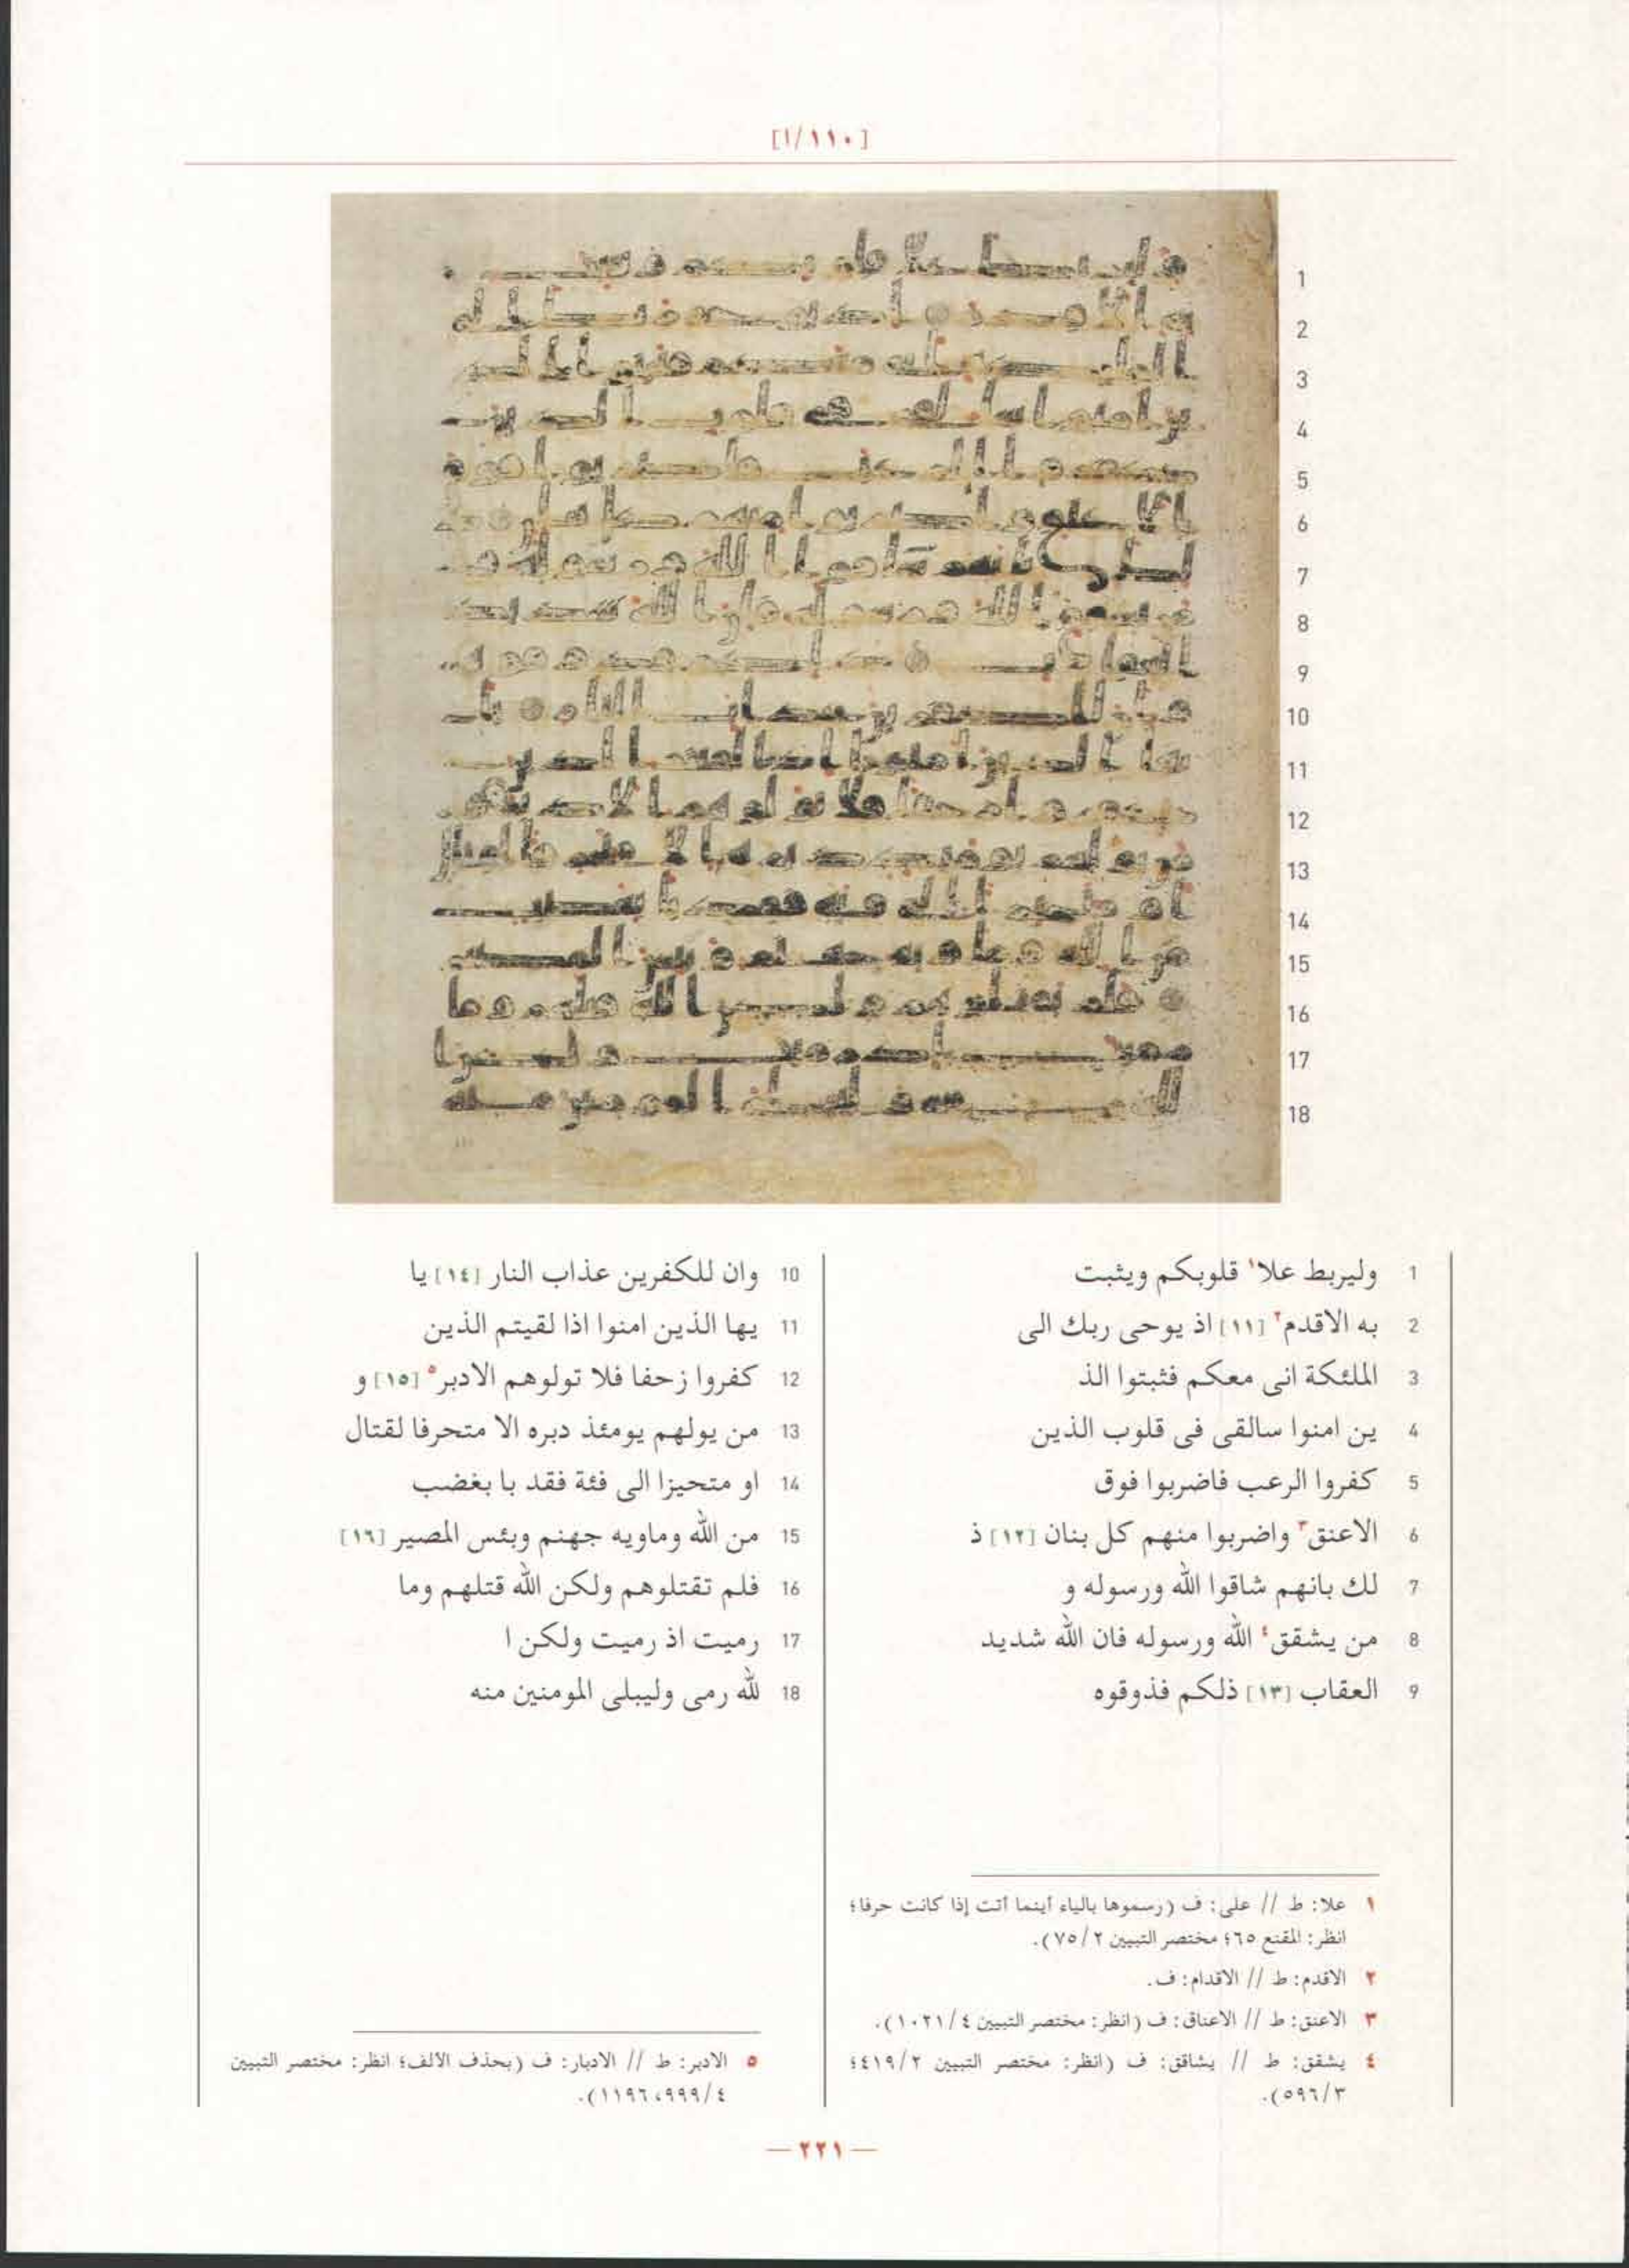 [١/١١٠]
1 وليربط علا١ قلوبكم ويثبت
2 به الاقدم٢ [١١] اذ يوحى ربك الى
3 الملئكة انى معكم فثبتوا الذ
4 ين امنوا سالقى فى قلوب الذين
5 كفروا الرعب فاضربوا فوق
6 الاعنق٣ واضربوا منهم كل بنان [١٢] ذ
7 لك بانهم شاقوا الله ورسوله و
8 من يشقق٤ الله ورسوله فان الله شديد
9 العقاب [١٣] ذلكم فذوقوه
10 وان للكفرين عذاب النار [١٤] يا
11 يها الذين امنوا اذا لقيتم الذين
12 كفروا زحفا فلا تولوهم الادبر٥ [١٥] و
13 من يولهم يومئذ دبره الا متحرفا لقتال
14 او متحيزا الى فئة فقد با بغضب
15 من الله وماويه جهنم وبئس المصير [١٦]
16 فلم تقتلوهم ولكن الله قتلهم وما
17 رميت اذ رميت ولكن ا
18 لله رمى وليبلى المومنين منه
١ علا: ط // على: ف (رسموها بالياء أينما أتت إذا كانت حرفا؛
انظر: المقنع ٦٥؛ مختصر التبيين ٧٥/٢).
٢ الاقدم: ط // الاقدام: ف.
٣ الاعنق: ط // الاعناق: ف (انظر: مختصر التبيين ١٠٢١/٤).
٤ يشقق: ط // يشاقق: ف (انظر: مختصر التبيين ٤١٩/٢؛
٥٩٦/٣).
٥ الادبر: ط // الادبار: ف (بحذف الالف؛ انظر: مختصر التبيين
٩٩٩/٤، ١١٩٦).
— ٢٢١ —